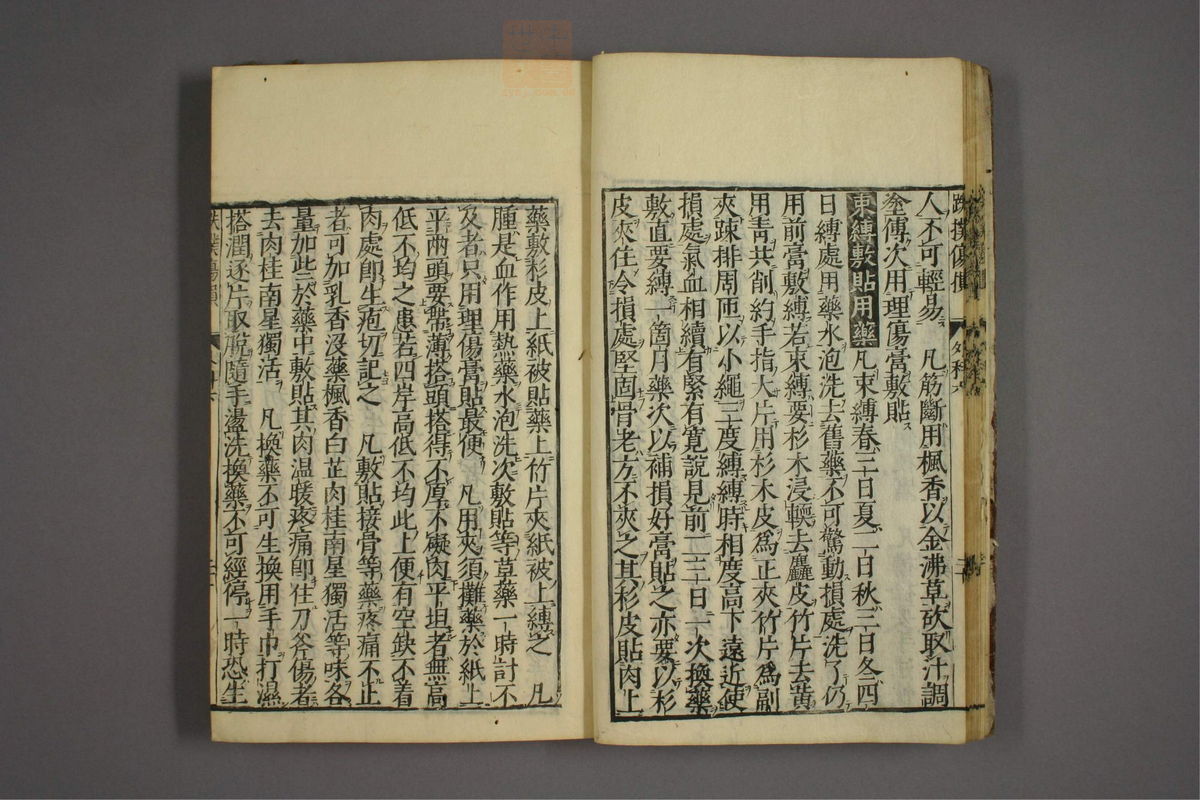 人不可輕易 凡筋斷用楓香以金沸草砍取汁調
塗傅次用理傷膏敷貼
束縛敷貼用藥 凡束縛春三日夏二日秋三日冬四
日縛處用藥水泡洗去舊藥不可驚動損處洗了仍
用前膏敷縛若束縛要杉木浸輭去麤皮竹片去黃
用青共削約手指大片用杉木皮爲正夾竹片爲副
夾踈排周匝以小繩三度縛縛時相度高下遠近使
損處氣血相續有緊有寬說見前二三日一次換藥
敷直要縛一箇月藥次以補損好膏貼之亦要以杉
皮夾住令損處堅固骨老方不夾之其杉皮貼肉上
藥敷杉皮上紙被貼藥上竹片夾紙被上縛之 凡
腫是血作用熱藥水泡洗次敷貼等草藥一時討不
及者只用理傷膏貼最便 凡用夾須攤藥於紙上
平兩頭要帶薄搭頭搭得不厚不礙肉平坦者無高
低不均之患若四岸高低不均此上便有空缺不着
肉處卽生疱切記之 凡敷貼接骨等藥疼痛不止
者可加乳香沒藥楓香白芷肉桂南星獨活等味各
量加些於藥中敷貼其肉温暖疼痛卽住刀斧傷者
去肉桂南星獨活 凡換藥不可生換用手巾打濕
搭潤逐片取脫隨手盪洗換藥不可經停一時恐生